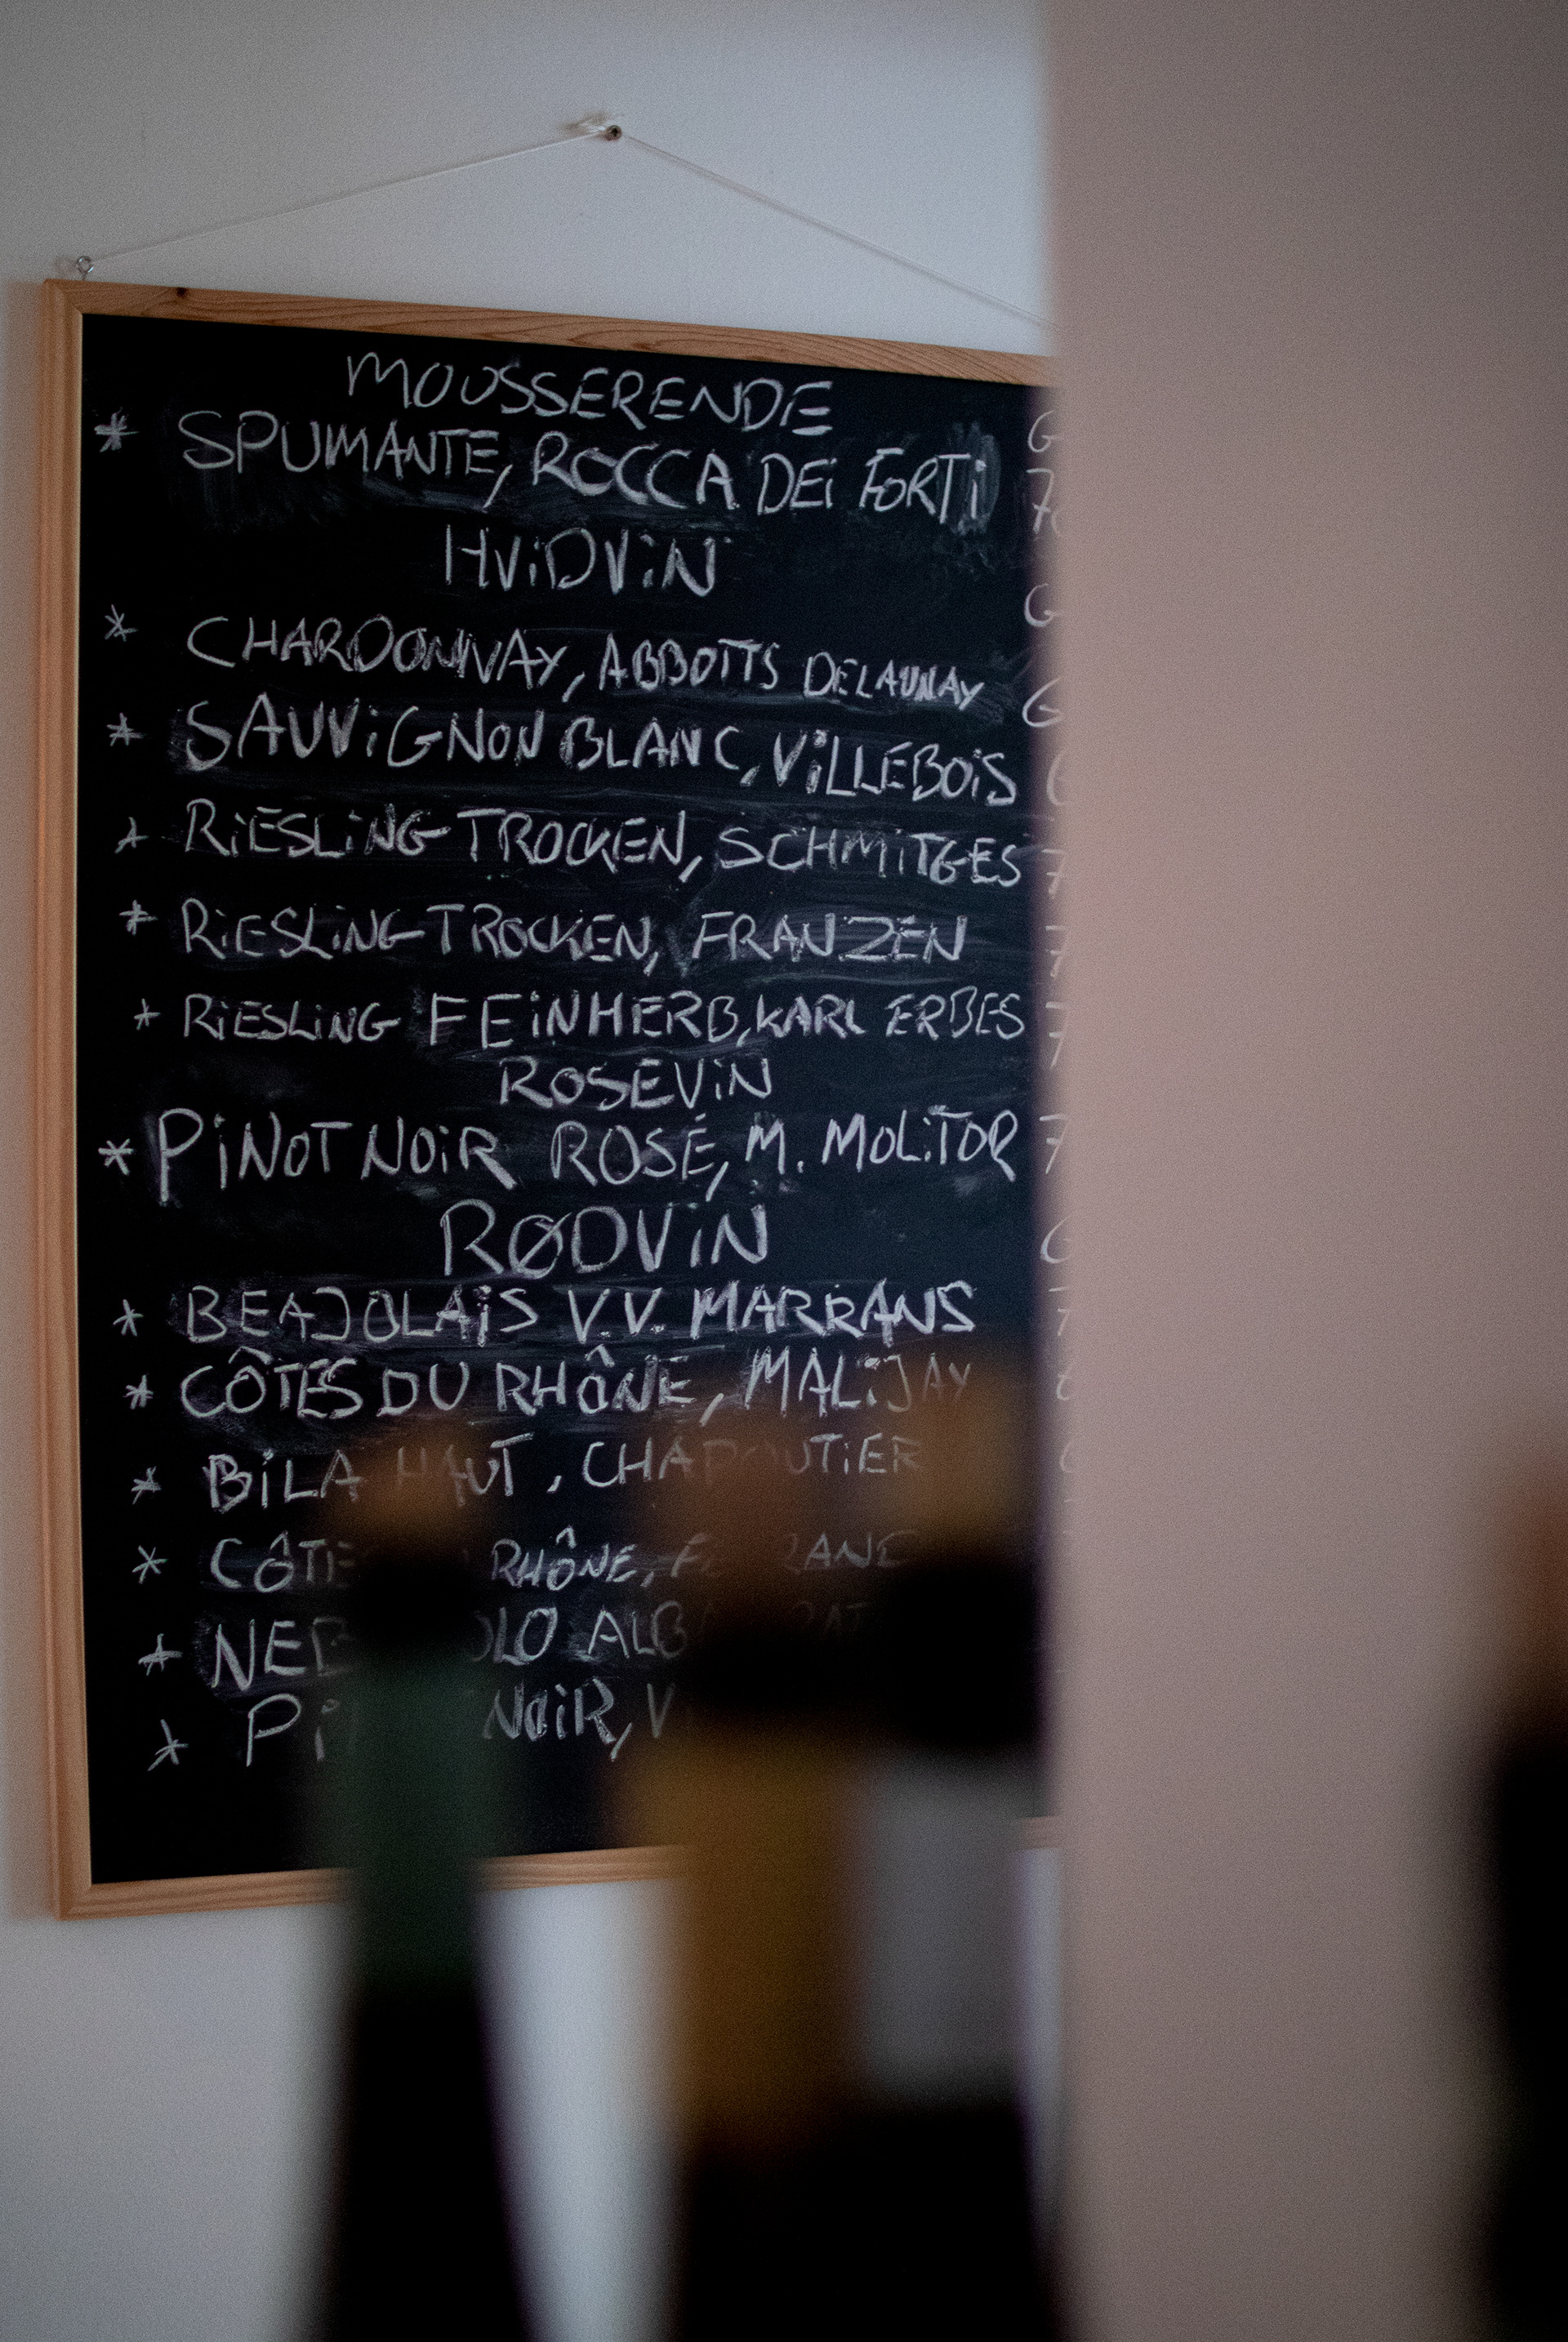 MOUSSERENDE
* SPUMANTE, ROCCA DEI FORTI
HVIDVIN
* CHARDONNAY, ABBOTTS DELAUNAY
* SAUVIGNON BLANC, VILLEBOIS
* RIESLING TROCKEN, SCHMITGES
* RIESLING TROCKEN, FRANZEN
* RIESLING FEINHERB, KARL ERBES
ROSEVIN
* PINOT NOIR ROSÉ, M. MOLITOR
RØDVIN
* BEAJOLAIS V.V. MARRANS
* CÔTES DU RHÔNE, MALIJAY
* BILA HAUT, CHAPOUTIER
* RHÔNE,
* ALBA
* NOIR,